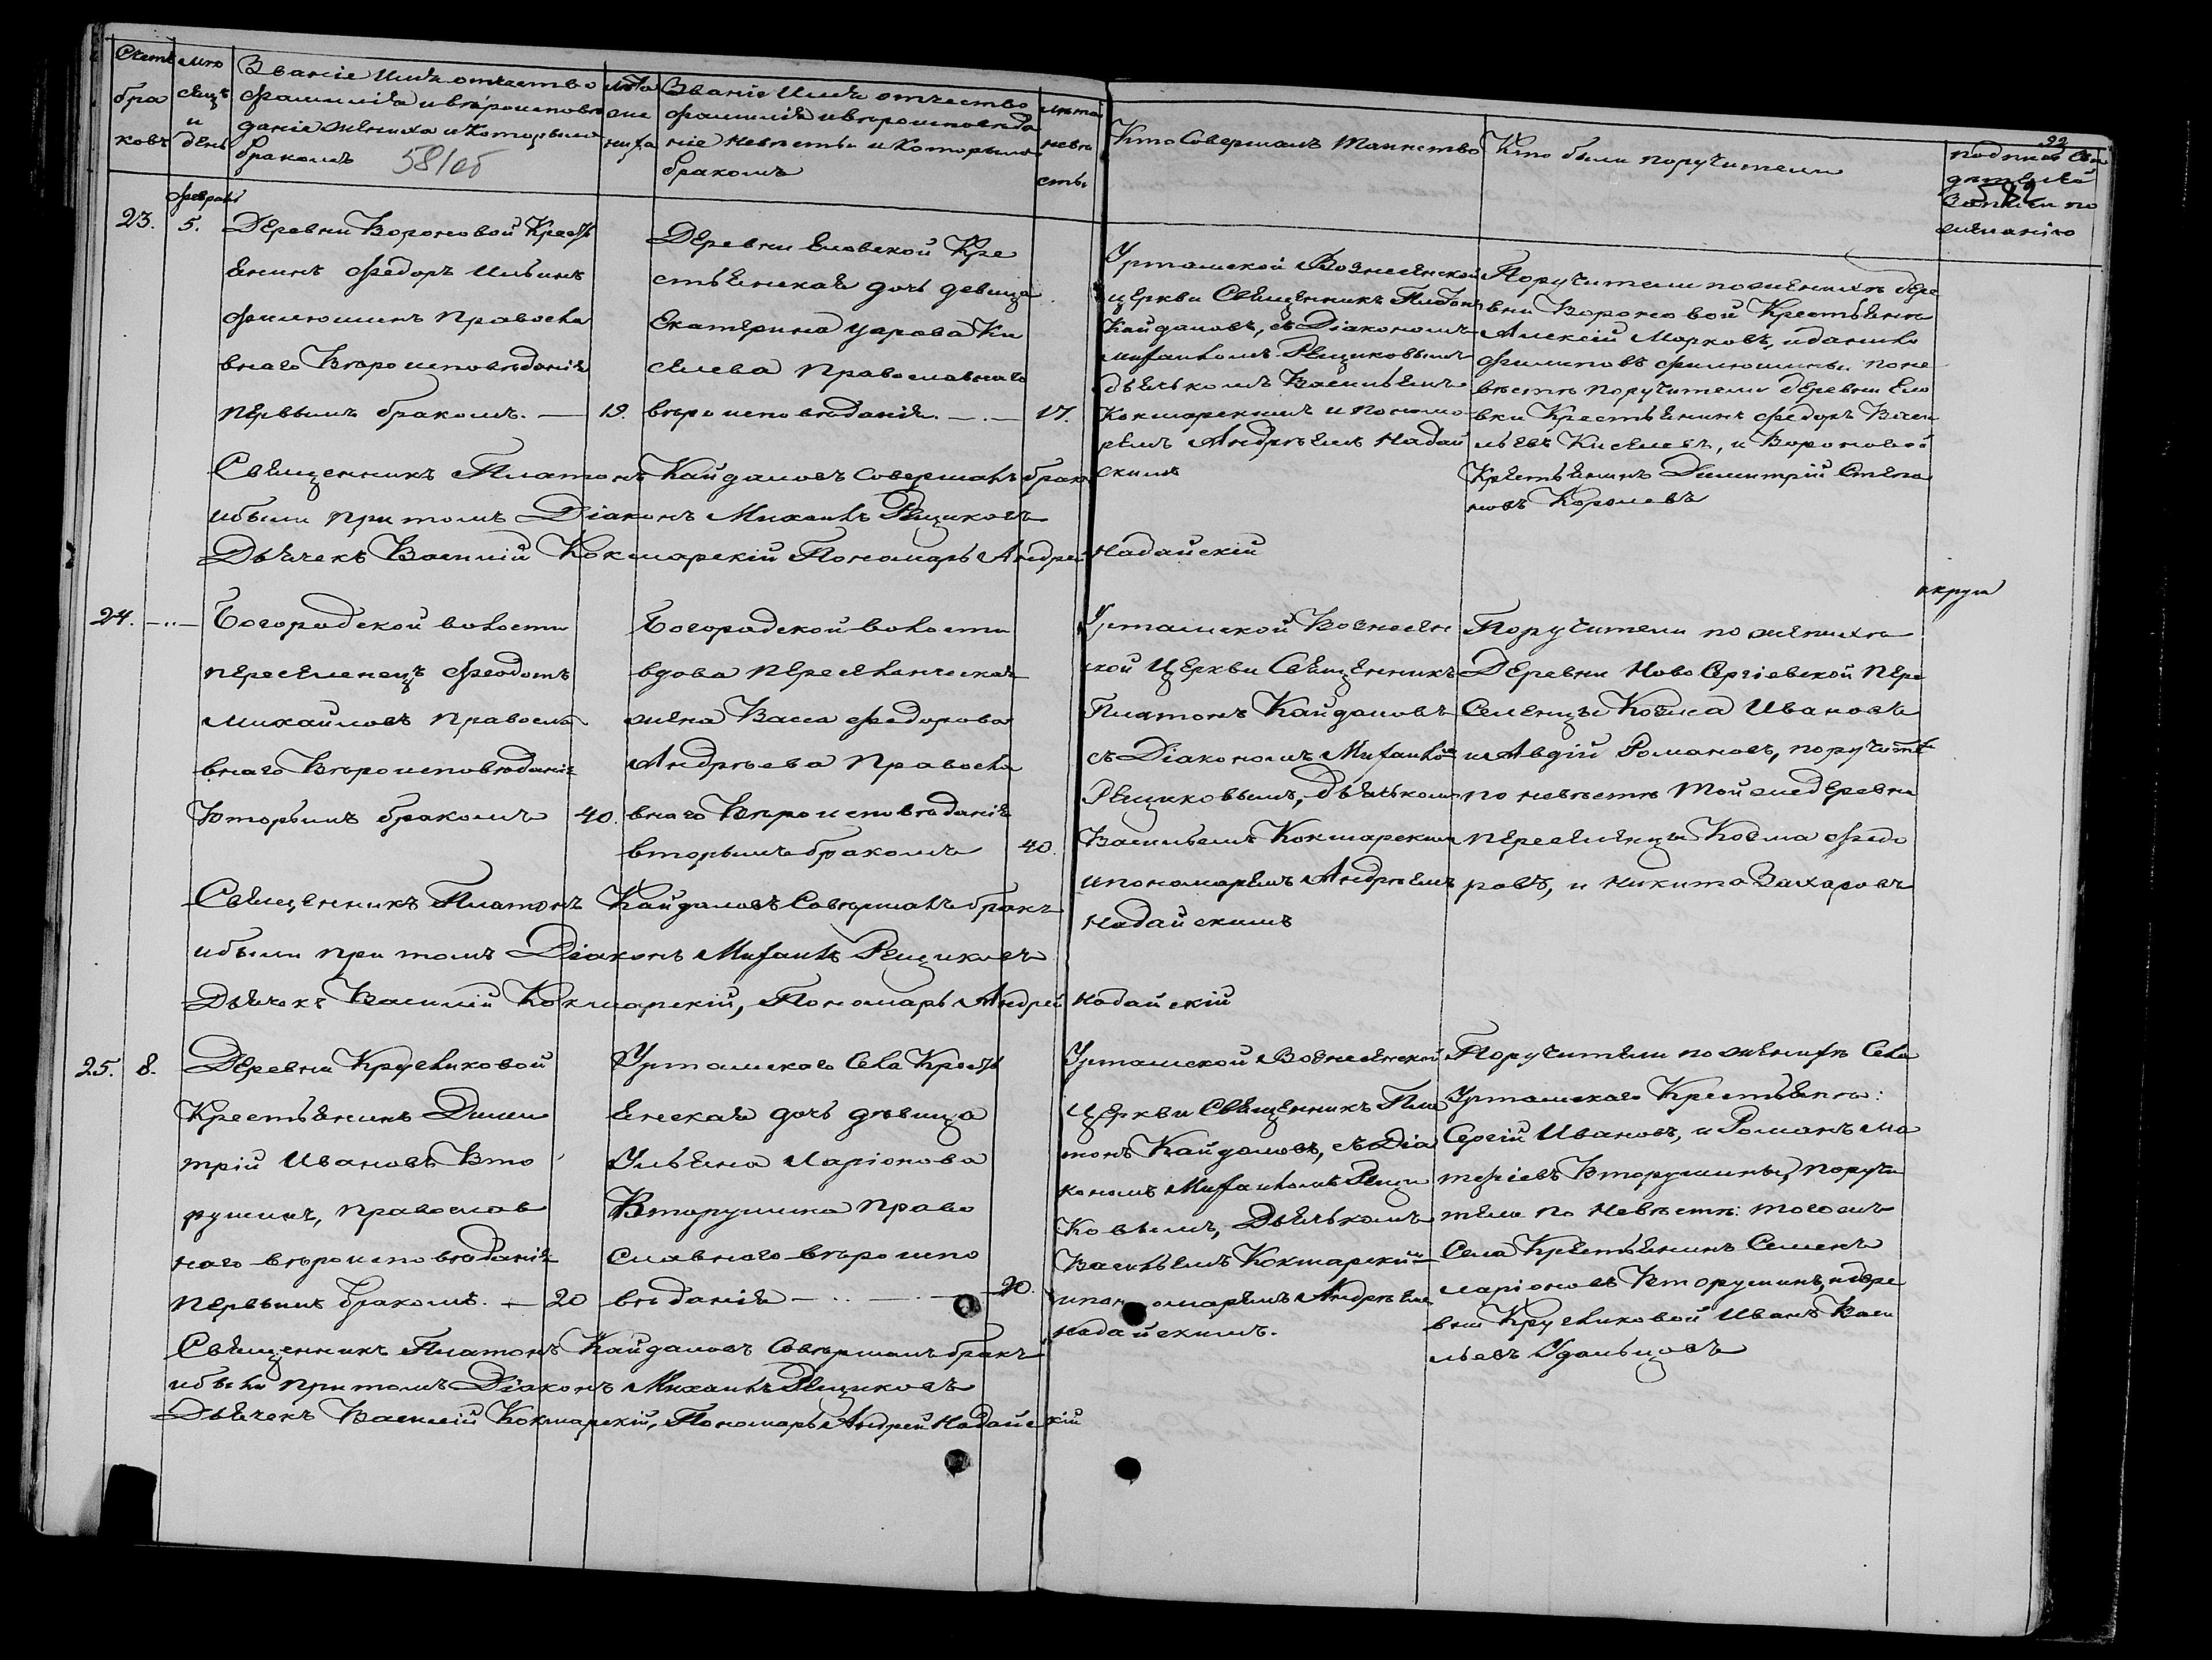 Счетъ бра ковъ
Мѣ сяцъ и день
Званіе Имя отчество
фамилія и вѣроисповѣ
даніе жениха и которымъ
бракомъ
58/об
Лѣта же ниха
Званіе Имя отчество
фамилія и вѣроисповѣда
ніе невѣсты и которымъ
бракомъ
лѣта невѣ сты
Кто Совершалъ Таинство
Кто были поручители
подпись Сви
дѣтелей
Записи по
желанію
Февраль
23.
5.
Деревни Вороновой Кресть
янинъ Федоръ Ильинъ
Филюшинъ Правосла
внаго Вѣроисповѣданія
первымъ бракомъ. — 19.
Деревни Еловской Кре
стьянская дочь девица
Екатерина Уарова Ки
селева Православнаго
вѣроисповѣданія. —.— 17.
Уртамской Вознесенской
церкви Священникъ Платонъ
Кайдаловъ, съ Діакономъ
Михаиломъ Рещиковымъ
дьячькомъ Васильемъ
Кокшарскимъ и пономо
ремъ Андрѣемъ Надай
скимъ
Поручители по женихѣ дере
вни Вороновой Крестьяне
Алексій Марковъ, и данило
Филиповъ Филюшины. по не
вѣстѣ поручители деревни Ело
вки Крестьянинъ Федоръ Васи
льевъ Киселевъ, и Вороновой
Крестьянинъ Димитрій Степа
новъ Королевъ
Священникъ Платонъ Кайдаловъ Совершалъ бракъ
и были при томъ Діаконъ Михаилъ Рещиковъ
Дьячекъ Василій Кокшарскій Пономарь Андрей Надайскій
24. —..—
Богородской волости
переселенецъ Феодотъ
Михайловъ Правосла
внаго Вѣроисповѣданія
Вторымъ бракомъ 40.
Богородской волости
вдова переселенческая
жена Васса Федорова
Андрѣева Правосла
внаго Вѣроисповѣданія
вторымъ бракомъ 40.
Уртамской Вознесен
ской Церкви Священникъ
Платонъ Кайдаловъ
съ Діакономъ Михаиломъ
Рещиковымъ, дьячькомъ
Васильемъ Кокшарскимъ
и пономаремъ Андрѣемъ
Надайскимъ
округи
Поручители по женихѣ
Деревни Ново Сергіевской Пере
Селенцы Козма Ивановъ
и Авдій Романовъ, поручите
по невѣстѣ Той же деревни
переселенцы Козма Федо
ровъ, и Никита Захаровъ
Священникъ Платонъ Кайдаловъ Совершалъ бракъ
и были при томъ Діаконъ Михаилъ Рещиковъ
Дьячокъ Василій Кокшарскій, Пономарь Андрей Надайскій
25. 8.
Деревни Кругликовой
Крестьянинъ Дими
трій Ивановъ Вто
рушинъ, православ
наго вѣроисповѣданія
первымъ бракомъ. — 20
Уртамского Села Кресть
янская дочь дѣвица
Ульяна Ларіонова
Вторушина Право
славнаго вѣроиспо
вѣданія —..— 20.
Уртамской Вознесенской
Церкви Священникъ Пла
тонъ Кайдаловъ, съ Діа
кономъ Михаиломъ Рещи
Ковымъ, Дьячькомъ
Васильемъ Кокшарскимъ
и пономаремъ Андрѣемъ
Надайскимъ.
Поручители по женихѣ Села
Уртамскаго Крестьяне:
Сергій Ивановъ, и Романъ Ма
тфіевъ Вторушины, Поручи
тели по Невѣстѣ: того же
Села Крестьянинъ Семенъ
Ларіоновъ Вторушинъ, и дере
вни Кругликовой Иванъ Васи
льевъ Удальцовъ
Священникъ Платонъ Кайдаловъ Совершалъ бракъ
и были при томъ Діаконъ Михаилъ Рещиковъ
Дьячекъ Василій Кокшарскій, Пономарь Андрей Надайскій